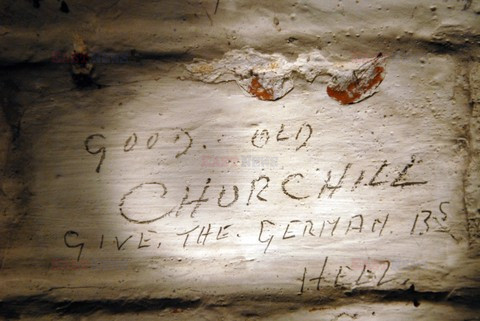 GOOD. OLD
CHURCHILL
GIVE. THE. GERMAN. BS
HELL.